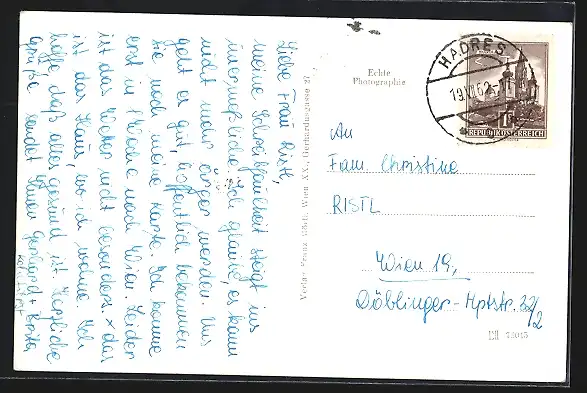 Liebe Frau Ristl,
meine Schreibfaulheit steigt ins
unermeßliche. Ich glaube, es kann
nicht mehr ärger werden. Uns
geht es gut, hoffentlich bekommen
Sie noch meine Karte. Ich komme
erst in 1 Woche nach Wien. Leider
ist das Wetter nicht besonders. x das
ist das Haus, wo ich wohne. Ich
hoffe, daß alles gesund ist. Herzliche
Grüße sendet Ihnen Gerhard +
Echte
Photographie
HADRES
REPUBLIK ÖSTERREICH
An
Frau Christine
RISTL
Wien 19,
Döblinger-Hptstr. 32/2
Verlag Franz Mörtl, Wien XX., Gerhardusgasse 27
73015